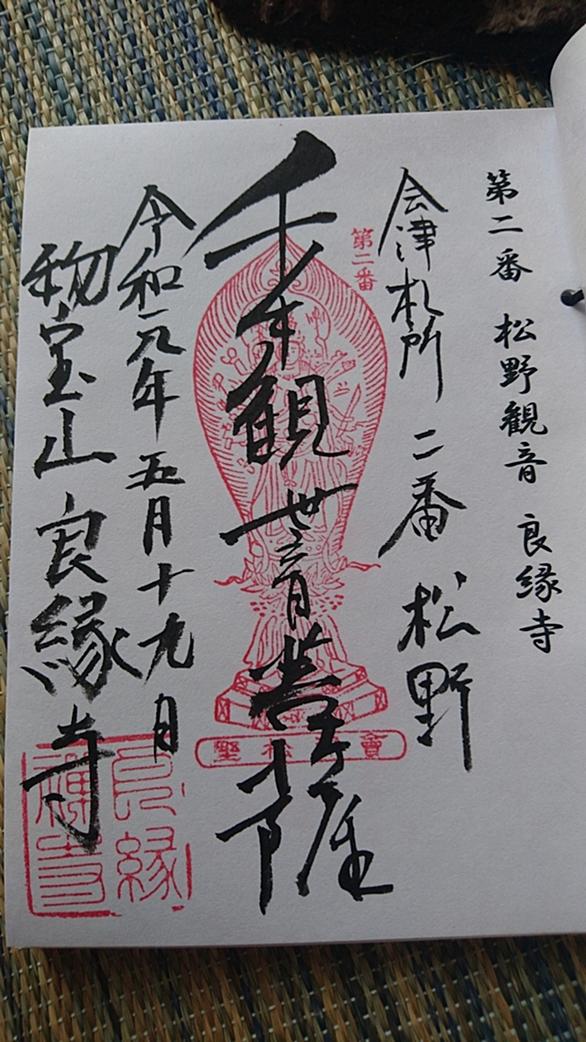 第二番 松野観音 良縁寺
会津札所 二番 松野
第二番
千手観世音菩薩
令和元年五月十九日
宝山 良縁寺
良縁
禅寺